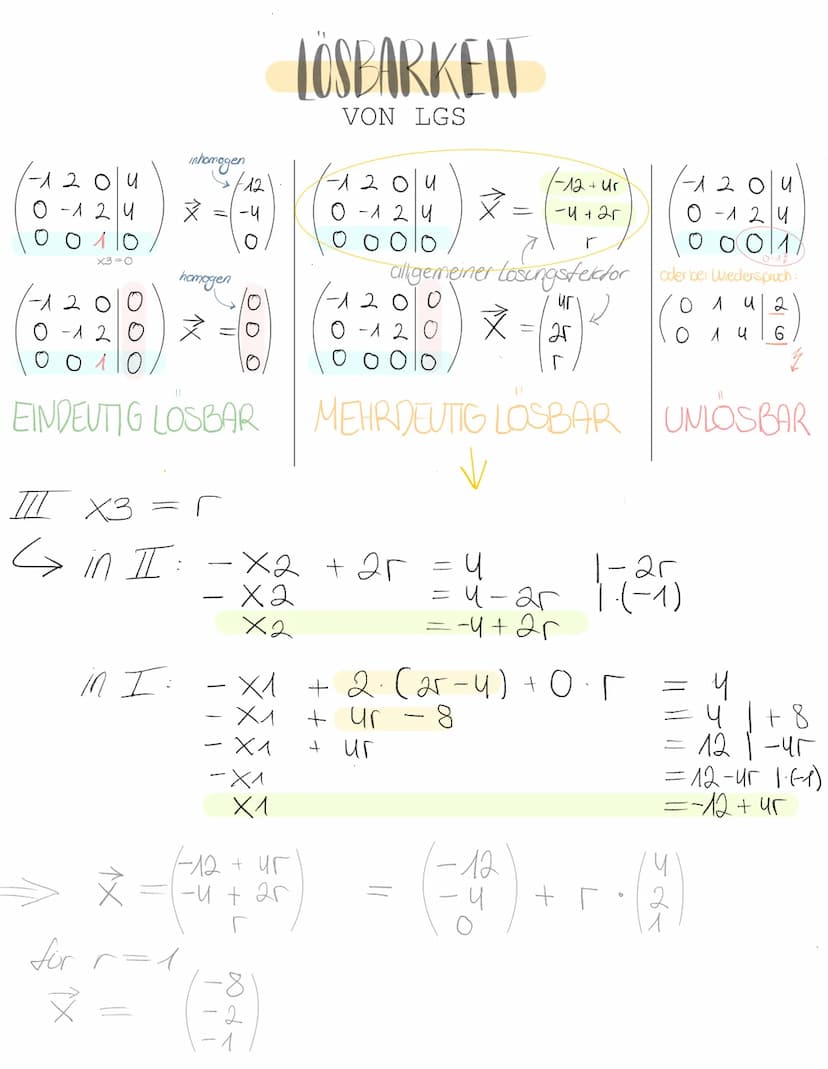 LÖSBARKEIT
VON LGS
inhomogen
-1 2 0 | 4
0 -1 2 | 4
0 0 1 | 0
x3=0
x⃗ = (-12 -4 0)
homogen
-1 2 0 | 0
0 -1 2 | 0
0 0 1 | 0
x⃗ = (0 0 0)
EINDEUTIG LÖSBAR
-1 2 0 | 4
0 -1 2 | 4
0 0 0 | 0
x⃗ = (-12+4r -4+2r r)
allgemeiner Lösungsfektor
-1 2 0 | 0
0 -1 2 | 0
0 0 0 | 0
x⃗ = (4r 2r r)
MEHRDEUTIG LÖSBAR
-1 2 0 | 4
0 -1 2 | 4
0 0 0 | 1
oder bei Wiederspruch:
0 1 4 | 2
0 1 4 | 6
UNLÖSBAR
III x3 = r
in II: -x2 + 2r = 4 |-2r
-x2 = 4-2r |·(-1)
x2 = -4+2r
in I: -x1 + 2·(2r-4) + 0·r = 4
-x1 + 4r - 8 = 4 |+8
-x1 + 4r = 12 |-4r
-x1 = 12-4r |·(-1)
x1 = -12+4r
⇒ x⃗ = (-12 + 4r -4 + 2r r) = (-12 -4 0) + r · (4 2 1)
für r=1
x⃗ = (-8 -2 -1)